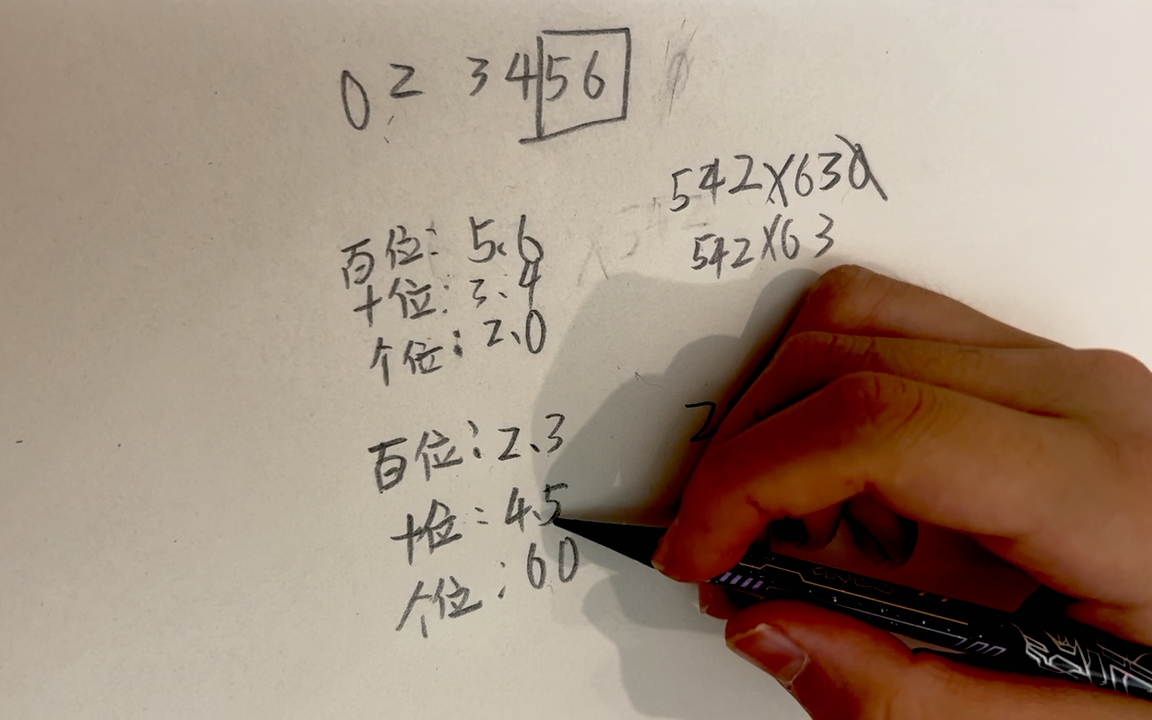 0 2 3 4 5 6
542×630
542×63
百位:5、6
十位:3、4
个位:2、0
百位:2、3
十位:4、5
个位:6 0
2